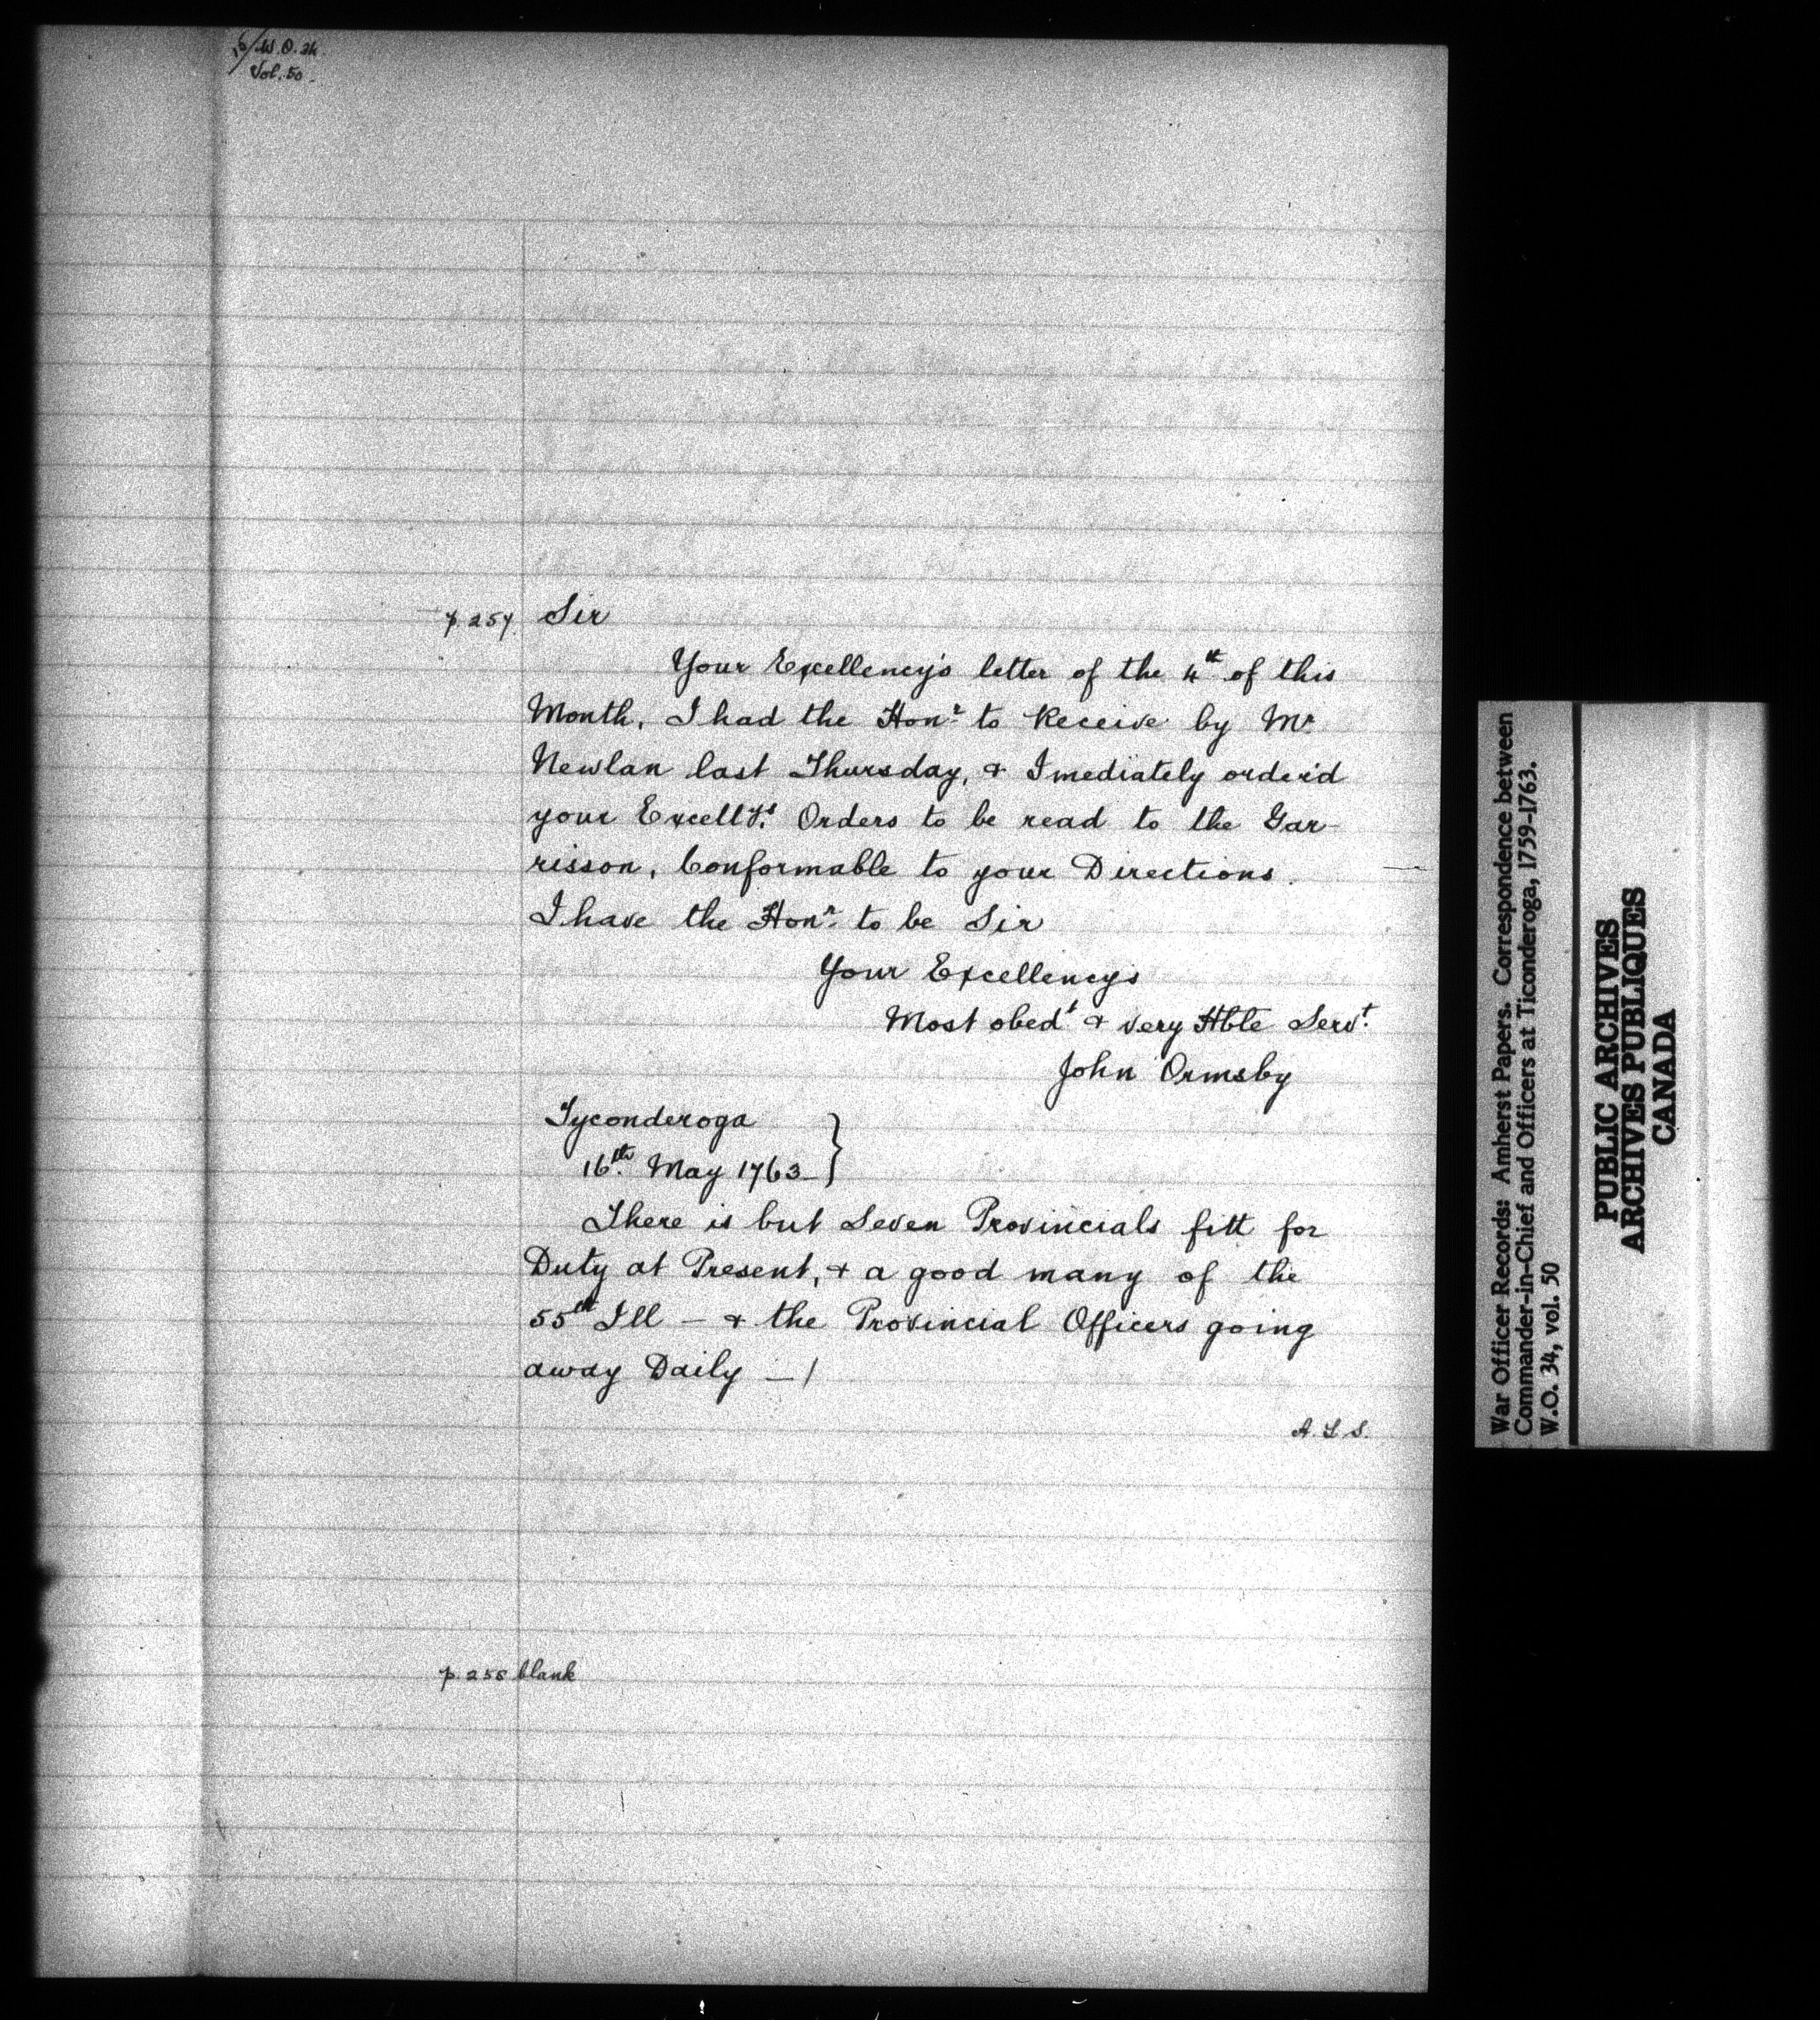 W.O. 34
Vol. 50
p. 257 Sir
Your Excellency's letter of the 4th of this
Month, I had the Honr. to Receive by Mr
Newlan last Thursday, & Imediately order'd
your Excelly's Orders to be read to the Gar-
risson, Conformable to your Directions.
I have the Honr. to be Sir
Your Excellency's
Most obedt & very Hble Servt.
John Ormsby
Tyconderoga
16th. May 1763
There is but Seven Provincials fitt for
Duty at Present, & a good many of the
55th Ill — & the Provincial Officers going
away Daily — /
A.L.S.
p. 258 blank
War Officer Records: Amherst Papers. Correspondence between
Commander-in-Chief and Officers at Ticonderoga, 1759-1763.
W.O. 34, vol. 50
PUBLIC ARCHIVES
ARCHIVES PUBLIQUES
CANADA